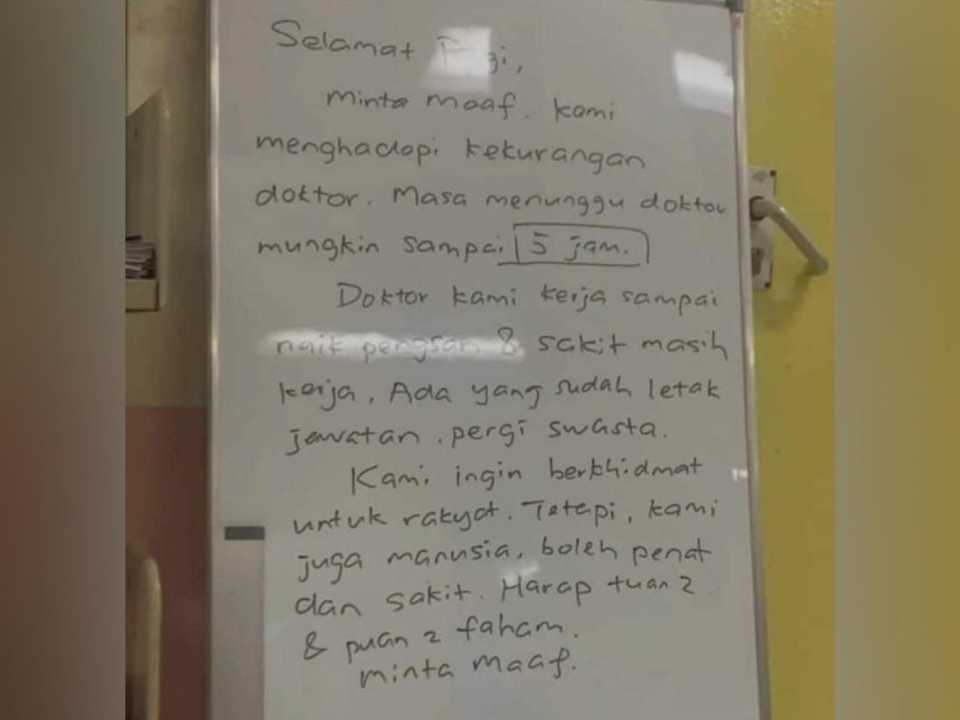 Selamat Pagi,
minta maaf. kami
menghadapi kekurangan
doktor. Masa menunggu doktor
mungkin sampai 5 jam.
Doktor kami kerja sampai
naik pengsan & sakit masih
kerja. Ada yang sudah letak
jawatan, pergi swasta.
Kami ingin berkhidmat
untuk rakyat. Tetapi, kami
juga manusia, boleh penat
dan sakit. Harap tuan2
& puan2 faham.
minta maaf.